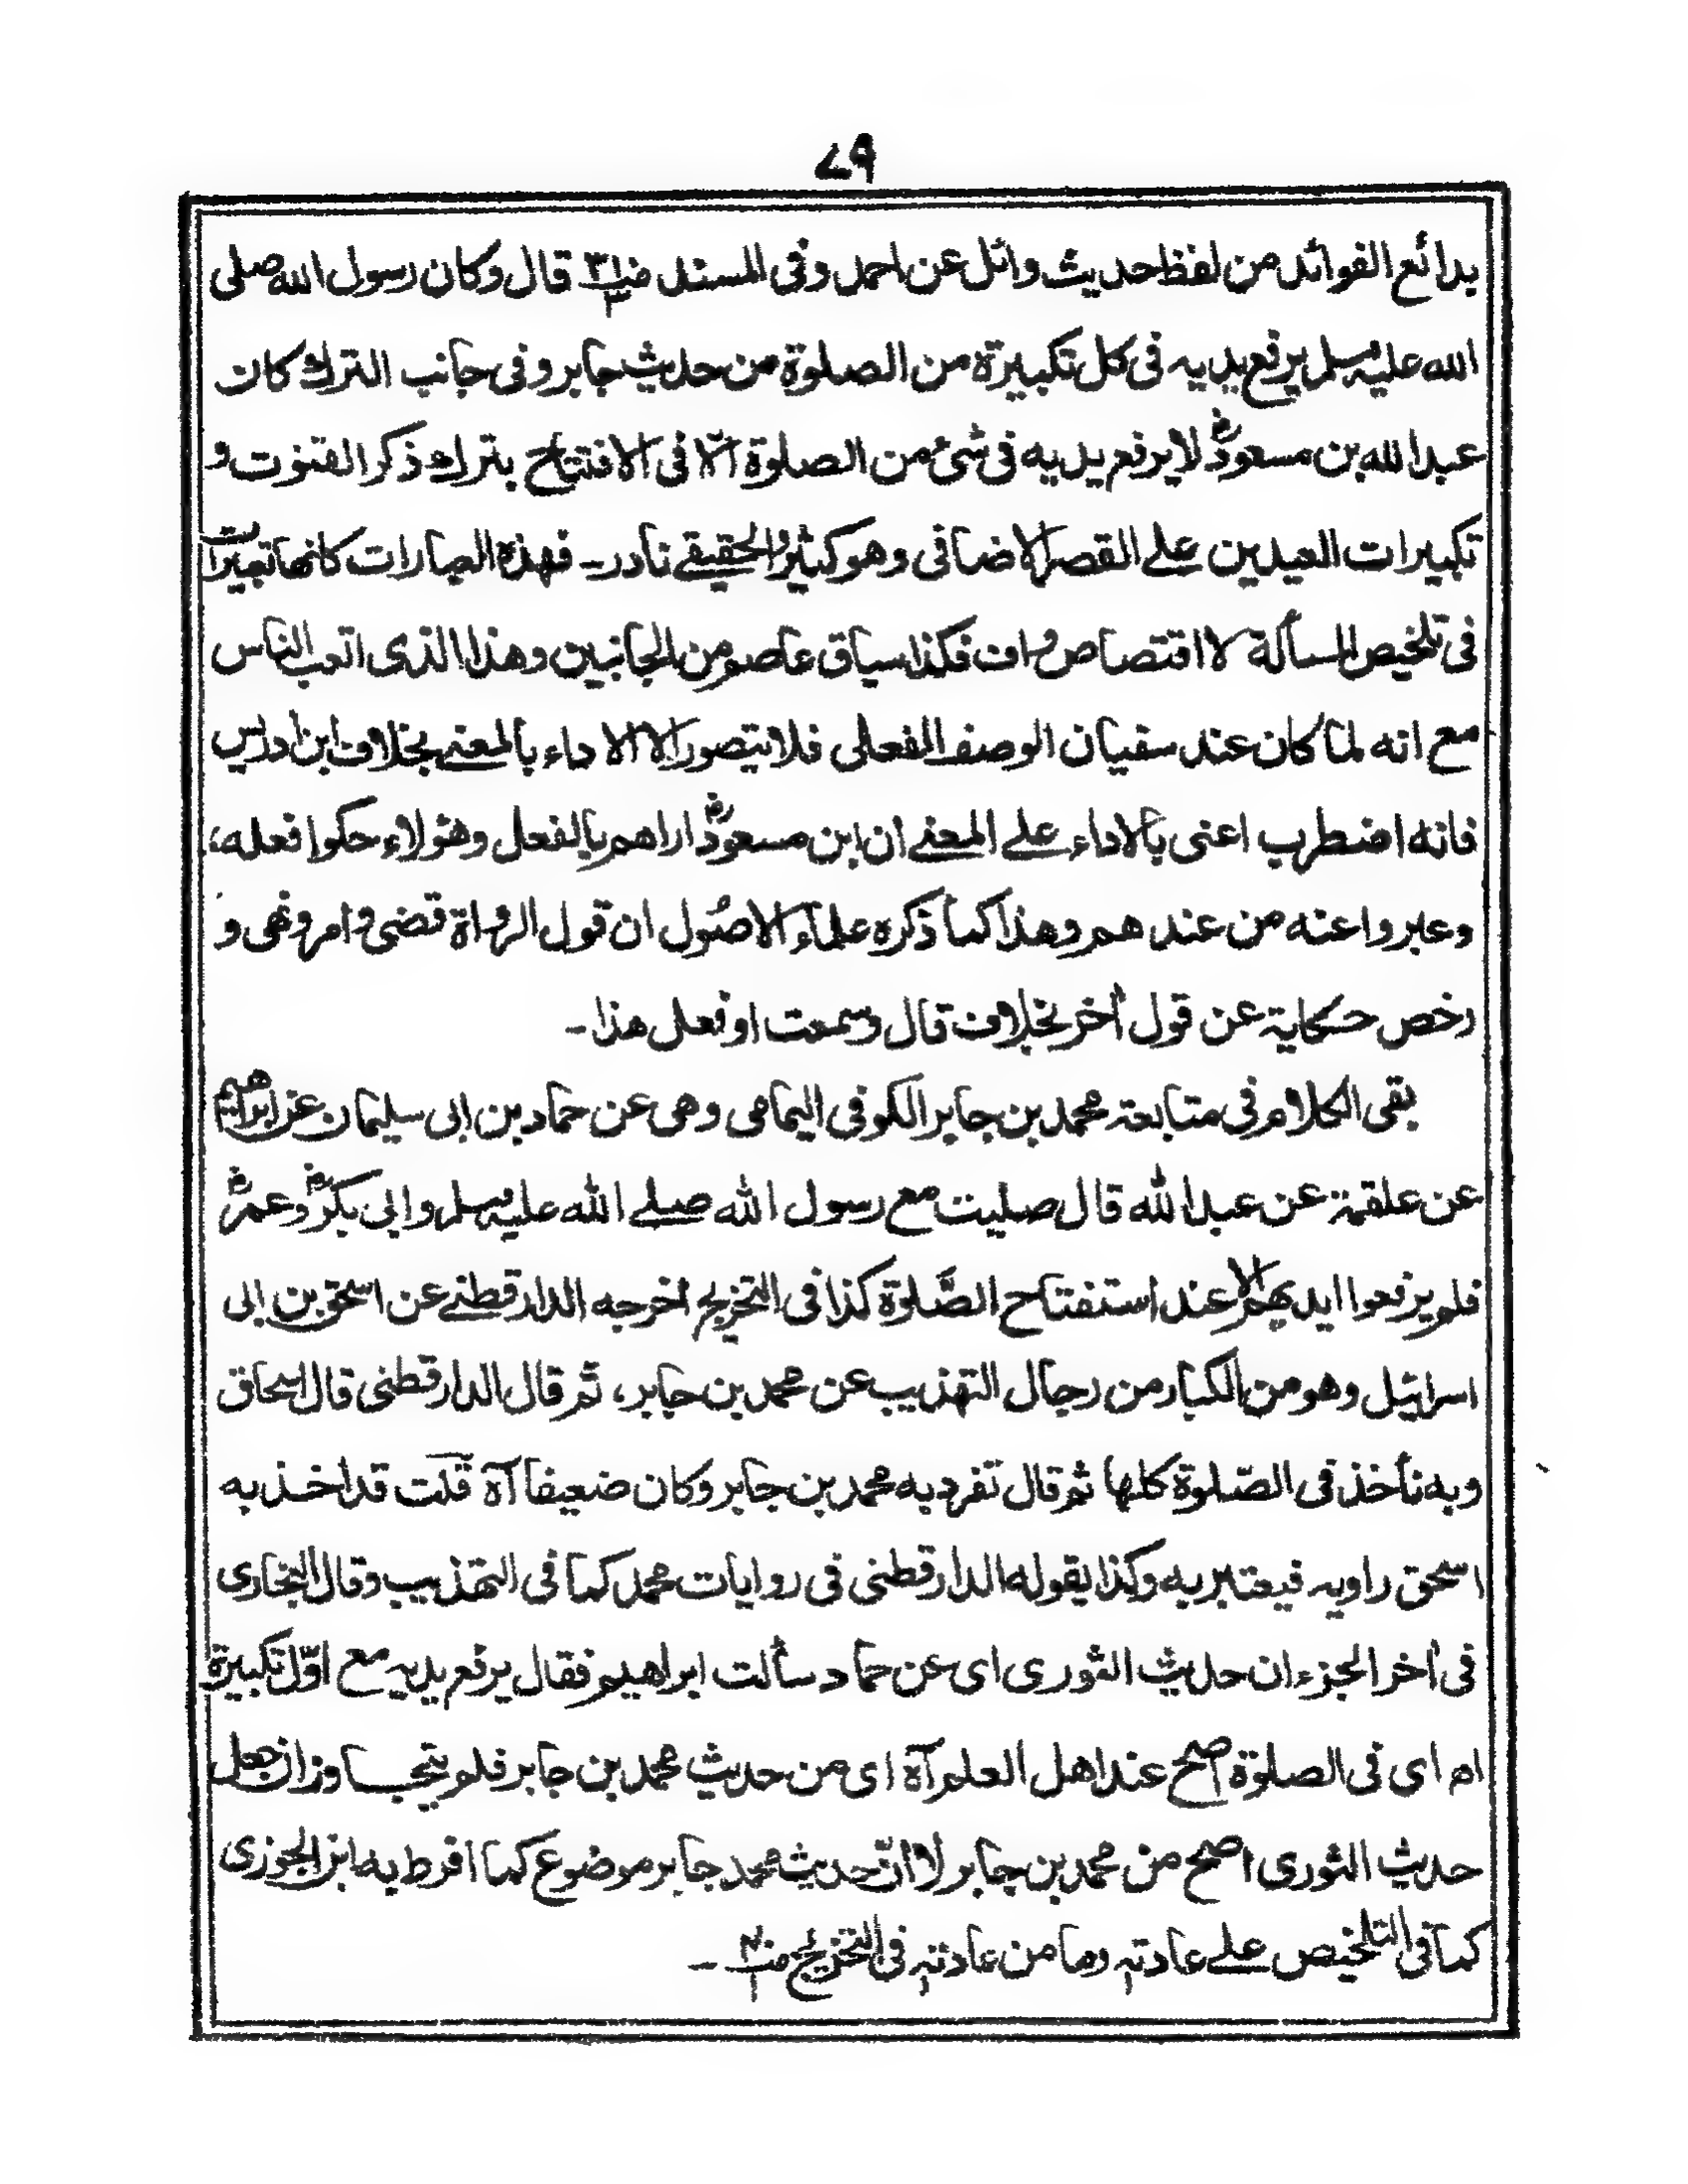 ٧٩
بدائع الفوائد من لفظ حديث وائل عن احمد وفى المسند قال وكان رسول الله صلى
الله عليه وسلم يرفع يديه فى كل تكبيرة من الصلوة من حديث جابر وفى جانب الترك كان
عبد الله بن مسعودؓ لا يرفع يديه فى شئ من الصلوة الّا فى الافتتاح بترك ذكر القنوت و
تكبيرات العيدين علے القصر الاضافى وهو كثير والحقيقے نادر۔ فهذه العبارات كانها تعبيرات
فى تلخيص المسألة لا اقتصاص واف فكذا سياق عاصم من الجانبين وهذا الذى اتعب الناس
مع انه لما كان عند سفيان الوصف الفعلى فلا يتصور الا الاداء بالمعنے بخلاف ابن ادريس
فانه اضطرب اعنى بالاداء علے المعنے ان ابن مسعودؓ اراهم بالفعل وهؤلاء حكوا فعله،
وعبروا عنه من عند هم وهذا كما ذكره علماء الاصول ان قول الرواة قضى وامر ونهى و
رخص حكاية عن قول اٰخر بخلاف قال وسمعت او فعل هذا۔
بقى الكلام فى متابعة محمد بن جابر الكوفى اليمامى وهى عن حماد بن ابى سليمان عن ابراهيم
عن علقمة عن عبد الله قال صليت مع رسول الله صلے الله عليه وسلم وابى بكرؓ وعمرؓ
فلم يرفعوا ايديهم الا عند استفتاح الصّلوة كذا فى التخريج اخرجه الدارقطنے عن اسحٰق بن ابى
اسرائيل وهو من الكبار من رجال التهذيب عن محمد بن جابر، ثم قال الدارقطنى قال اسحاق
وبه نأخذ فى الصّلوة كلها ثم قال تفرد به محمد بن جابر وكان ضعيفا اٰه قلت قد اخذ به
اسحٰق راويه فيعتبر به وكذا يقوله الدارقطنى فى روايات محمد كما فى التهذيب وقال البخارى
فى اٰخر الجزء ان حديث الثورى اى عن حماد سألت ابراهيم فقال يرفع يديه مع اوّل تكبيرة
اه اى فى الصلوة اصح عند اهل العلم اٰه اى من حديث محمد بن جابر فلم يتجاوز ان جعل
حديث الثورى اصح من محمد بن جابر لا انّ حديث محمد جابر موضوع كما افرط به ابن الجوزى
كما فى التلخيص علے عادته وما من عادته فى التخريج ۔